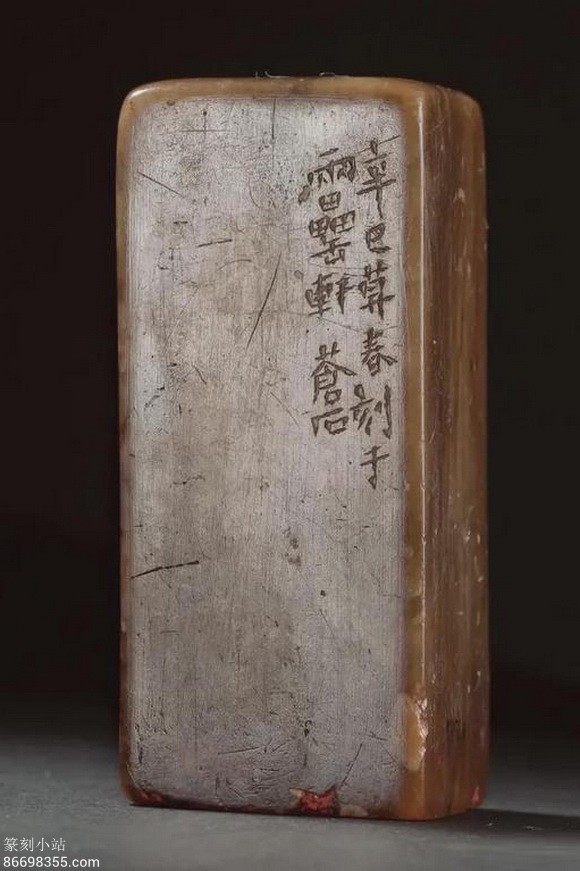 辛巳莫春刻于
兩罍軒 蒼石
篆刻小站
86698355.com